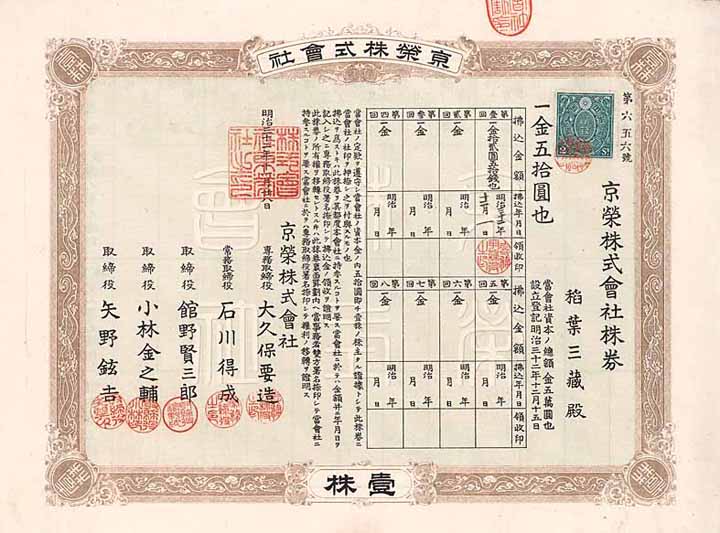 京榮株式會社
第六五六號
京榮株式會社株券
一金五拾圓也
稻葉三藏殿
當會社資本ノ總額金五萬圓也
設立登記明治三十二年十二月十五日
拂込金額
拂込年月日
領收印
第壹回
一金拾貳圓五拾錢也
明治三十二年十二月一日
第貳回
一金
明治 年 月 日
第參回
一金
明治 年 月 日
第四回
一金
明治 年 月 日
拂込金額
拂込年月日
領收印
第五回
一金
明治 年 月 日
第六回
一金
明治 年 月 日
第七回
一金
明治 年 月 日
第八回
一金
明治 年 月 日
當會社ノ定款ヲ遵守シ當會社ノ資本金ノ內五拾圓即チ壹株ノ株主タル證據トシテ此株券ニ
當會社ノ社印ヲ押捺シ之ヲ付與スルモノ也
京榮株式會社
專務取締役 大久保要造
常務取締役 石川得成
取締役 館野賢三郎
取締役 小林金之輔
取締役 矢野鉉吉
壹株